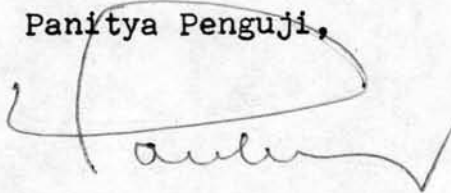 Panitya Penguji,